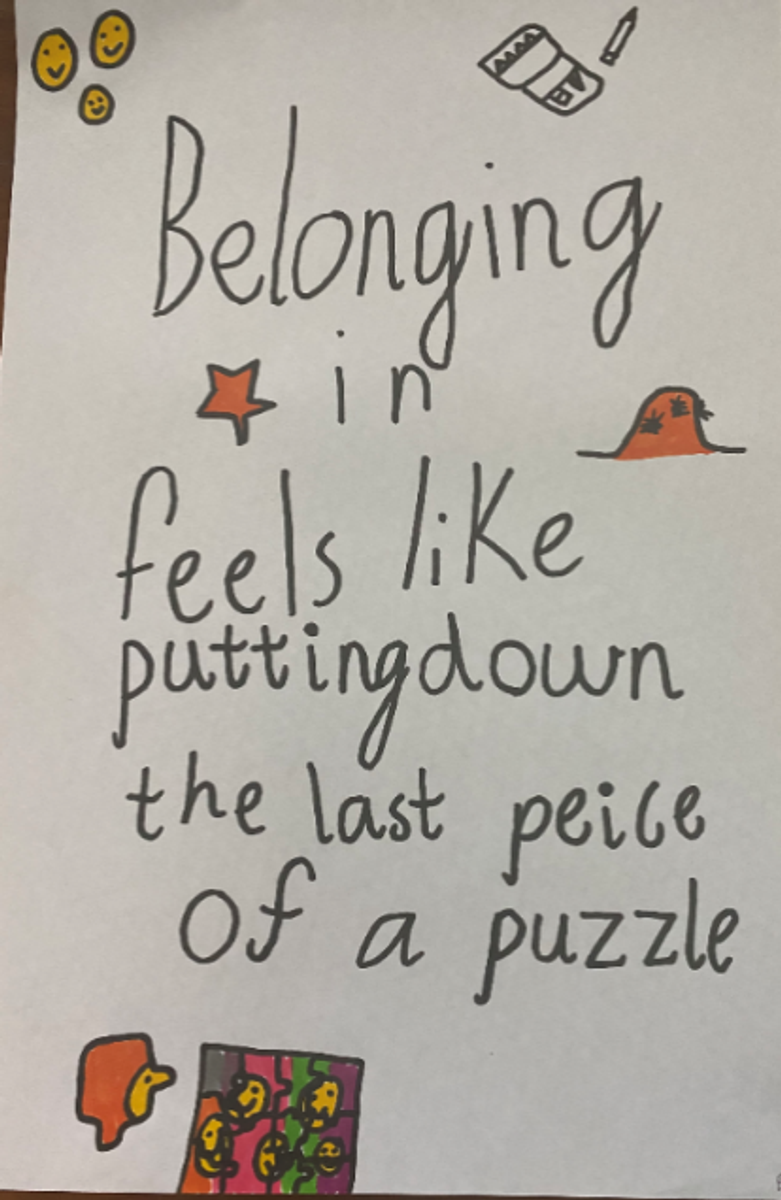 Belonging
in
feels like
puttingdown
the last peice
of a puzzle